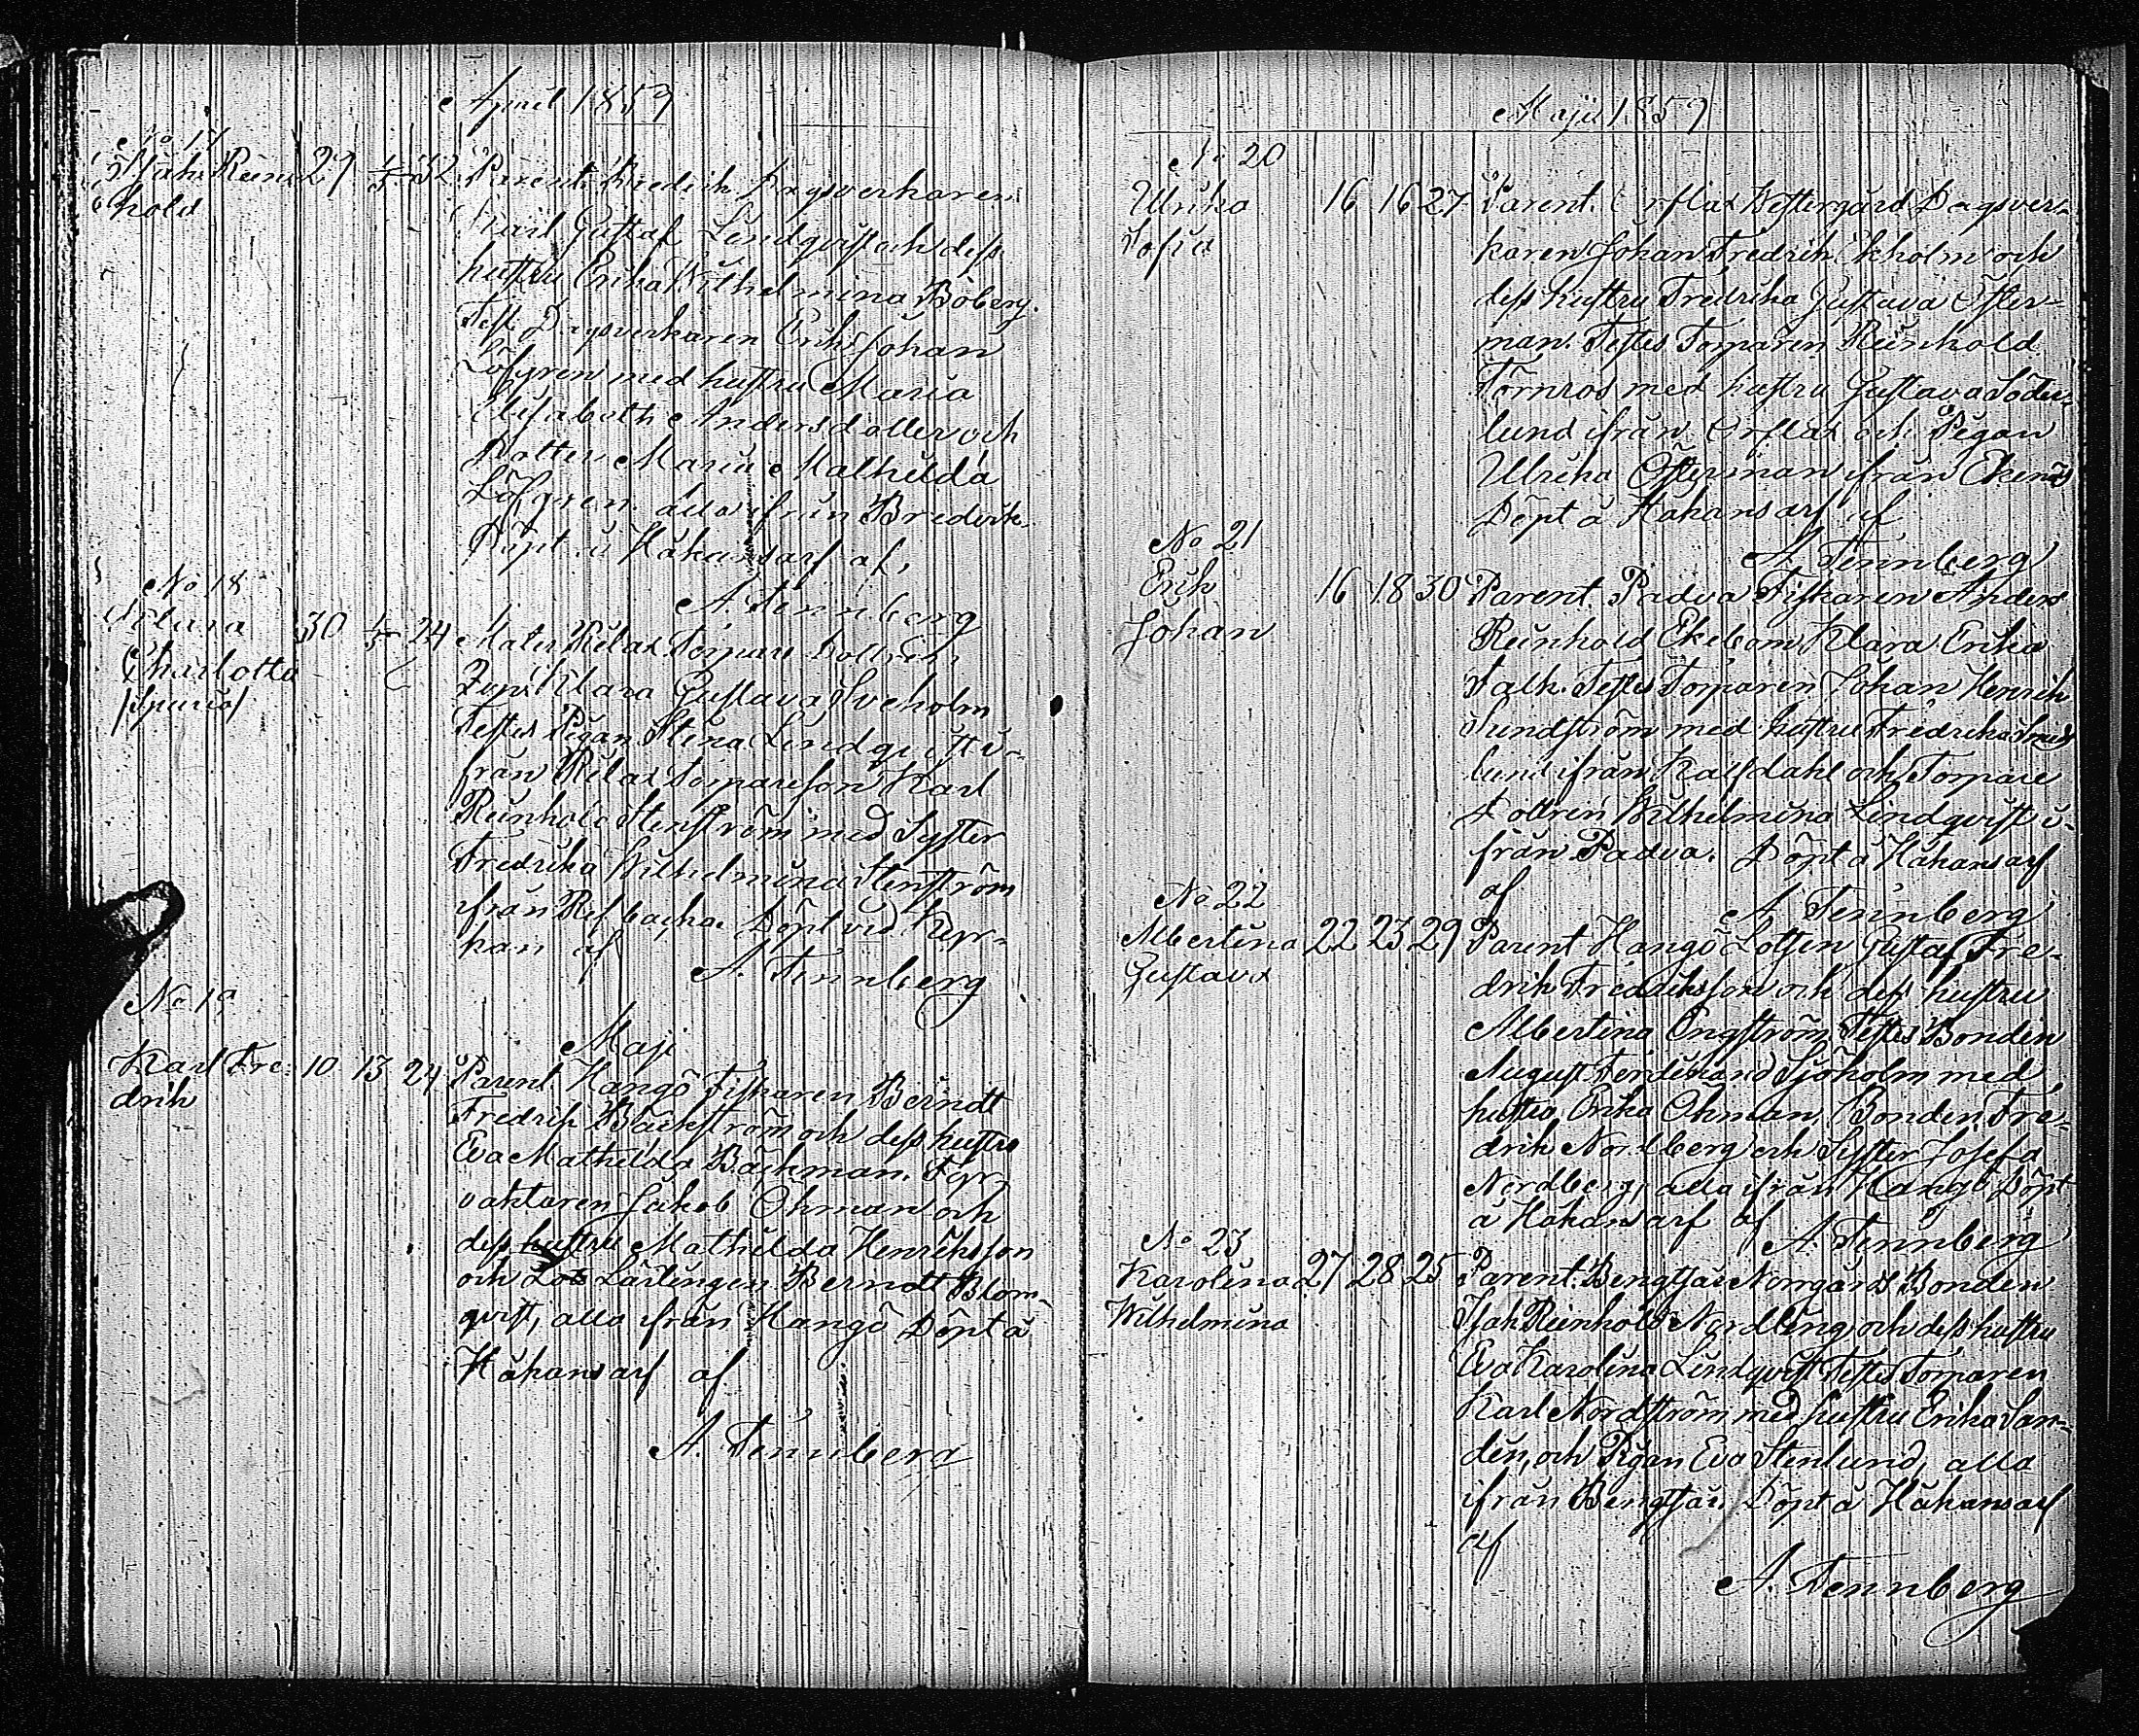 April 1859
No 17
Isak Rein- 29 1/5 32 Parent. Bredvik Dagsverkaren
hold
Karl Gustaf Lindqvist och dess
hustru Erika Wilhelmina Boberg.
Test. Dagsverkaren Erik Johan
Löfgren med hustru Maria
Elisabeth Andersdotter och
Dotter Maria Mathilda
Löfgren. alla ifrån Bredvik.
Döpt å Håkansarf af,
A. Tennberg
No 18
Klara 30 1/5 24 Mater Rilax Torpare Dottren
Charlotta
/spuria/
Klara Gustava Sveholm
Testes Pigan Stina Lindqvist i-
från Rilax Torpareson Karl
Reinhold Stenström med Syster
Fredrika Wilhelmina Stenström
ifrån Refbacka. Döpt vid Kyr-
kan af
A. Tennberg
No 19
Maji
Karl Fre- 10 13 24 Parent. Hangö Fiskaren Berndt
drik
Fredrik Bäckström och dess hustru
Eva Mathilda Bäckman. Fyr-
vaktaren Jakob Öhman och
dess hustru Mathilda Henriksson
och Lots Lärlingen Berndt Blom-
qvist, alla ifrån Hangö Döpt å
Håkansarf af
A. Tennberg
Maji 1859
No 20
Ulrika 16 16 27 Parent. Orflax Westergård Dagsver-
Sofia
karen Johan Fredrik Ekholm och
dess hustru Fredrika Gustava Öster-
man. Testes Torparen Reinhold
Törnros med hustru Gustava Söder-
lund ifrån Orflax och Pigan
Ulrika Österman ifrån Ekenäs
Döpt å Håkansarf af
A. Tennberg
No 21
Erik 16 18 30 Parent. Padva Fiskaren Anders
Johan
Reinhold Ekebom Klara Erika
Falk. Testes Torparen Johan Henrik
Sundström med hustru Fredrika
lund ifrån Kalfdahl och Torpare
Dottren Wilhelmina Lindqvist i-
från Padva. Döpt å Håkansarf
af
A. Tennberg
No 22
Albertina 22 23 29 Parent Hangö Lotsen Gustaf Fre-
Gustava
drik Fredriksson och dess hustru
Albertina Engström Testes Bonden
August Ferdinand Sjöholm med
hustru Erika Öhman, Bonden Fre-
drik Nordberg och Syster Josefa
Nordberg, alla ifrån Hangö Döpt
å Håkansarf af
A. Tennberg
No 23
Karolina 27 28 25 Parent. Bengtsår Norrgårds Bonden
Wilhelmina
Isak Reinhold Nordling och dess hustru
Eva Karolina Lindqvist Testes Torparen
Karl Nordström med hustru Erika San-
den, och Pigan Eva Stenlund, alla
ifrån Bengtsår. Döpt å Håkansarf
af
A. Tennberg